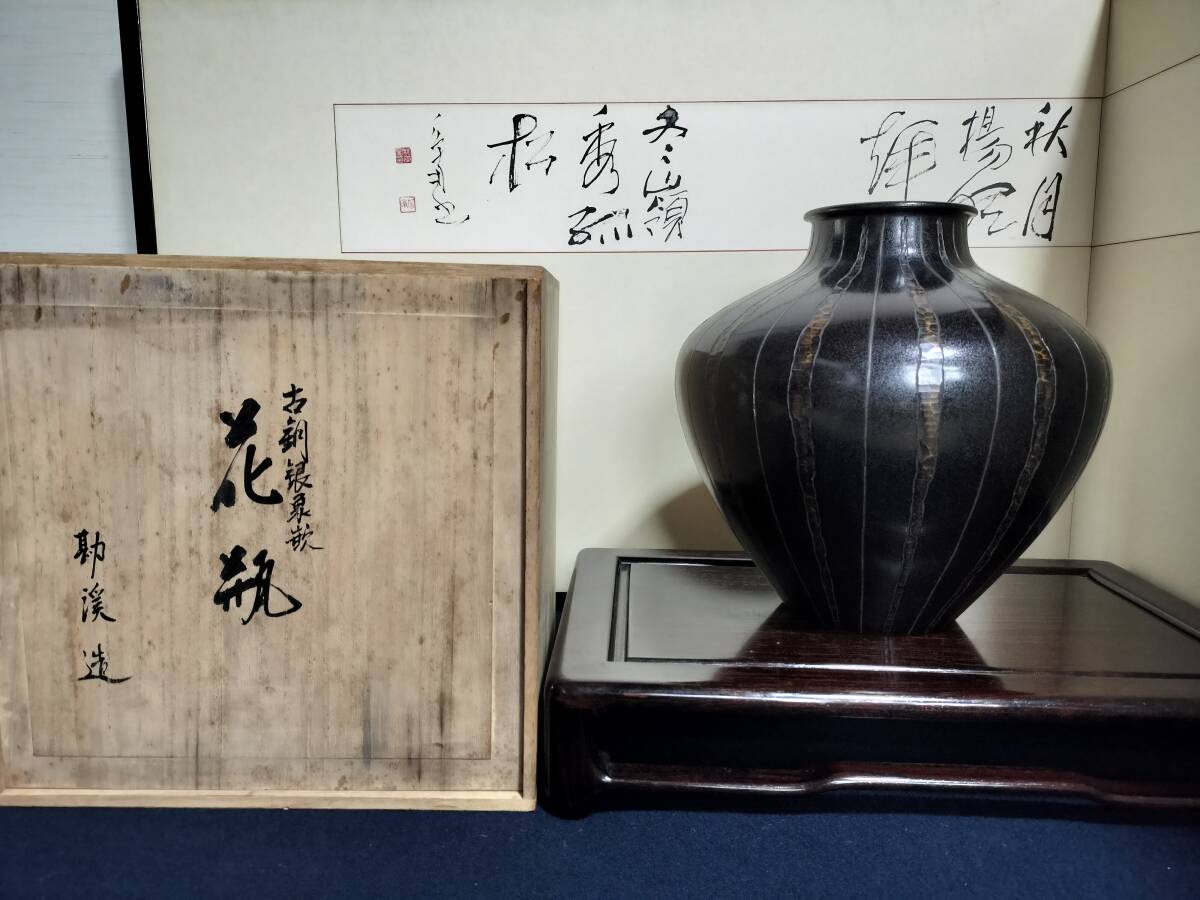 秋月
揚明
輝
冬山嶺
秀孤
松
古銅銀象嵌
花瓶
勘溪造